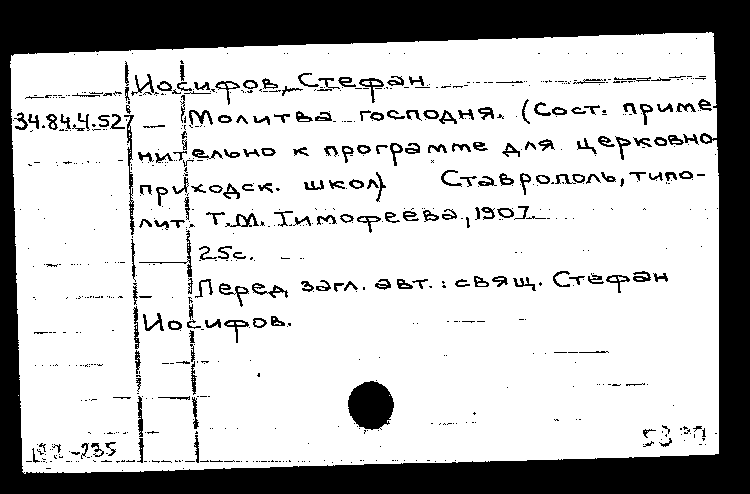 Иосифов, Стефан
34.84.4.527 Молитва господня. (Сост. приме-
нительно к программе для церковно-
приходск. школ). Ставрополь, типо-
лит. Т.М. Тимофеева, 1907.
25с.
Перед загл. авт.: свящ. Стефан
Иосифов.